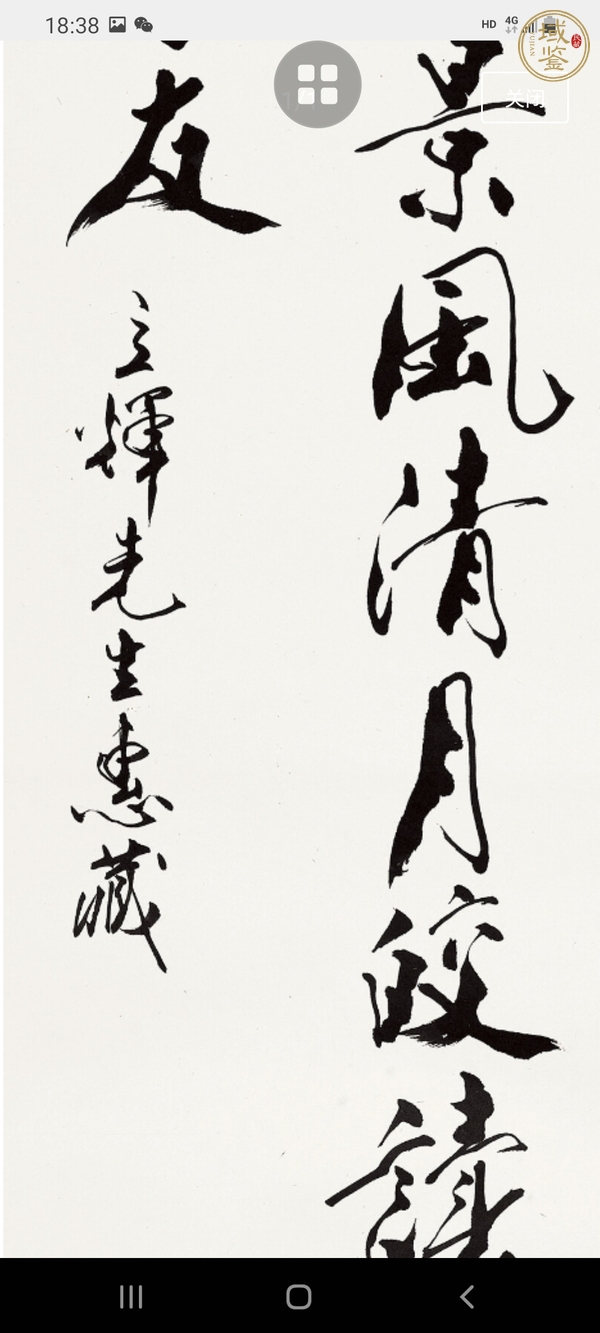 18:38
HD 4G
域鉴
关闭
景風清月皎讀
友
立輝先生惠藏